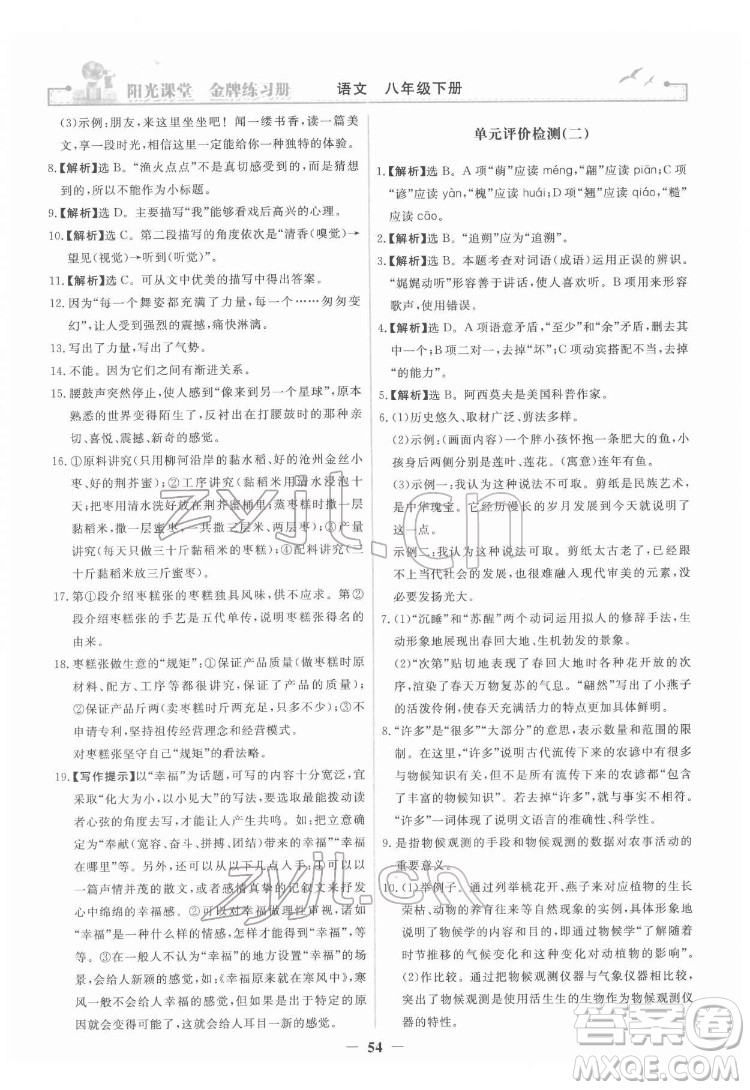 阳光课堂 金牌练习册 语文 八年级下册
(3)示例:朋友,来这里坐坐吧!闻一缕书香,读一篇美
文,享一段时光……在这里,你会有一种独特的体验。
8.【解析】选B。“渔火点点”不是真实感受到的景象,所
以不能作为小标题。
9.【解析】选D。主要描写“我”能够看戏后高兴的心理。
10.【解析】选C。第二段描写的角度依次是“清香(嗅觉)→
望见(视觉)→听到(听觉)”。
11.【解析】选C。可从文中优美的描写中得出答案。
12.因为“每一个舞姿都充满了力量,每一个……匆匆变
幻”,让人受到强烈的震撼,痛快淋漓。
13.写出了力量,写出了气势。
14.不能。因为它们之间有渐进关系。
15.腰鼓声突然停止,使人感到“像来到另一个星球”,原本
熟悉的世界变得陌生了,衬托出了打腰鼓时的那种亲
切、喜悦、震撼、新奇的感觉。
16.①原料讲究(只用柳河沿岸的黏水稻、好的沧州金丝小
枣、好的荆芥蜜);②工序讲究(用上好的清酒浸泡十
天;将浸泡好的枣放在荆芥蜜桶里;蒸枣糕时撒一层
黏稻米,撒一层蜜枣,三层黏稻米、两层枣);③产量
讲究(每天只做两屉或四屉的枣糕);④配料讲究(二
十斤黏稻米放三斤蜜枣)
17.第①段介绍枣糕张的枣糕独具风味,供不应求。第②
段介绍枣糕张的手艺是祖传的,说明枣糕张名字的
由来。
18.枣糕张做生意的“规矩”:①保证产品质量(做枣糕时原
材料、配方、工序等都很讲究,做出的枣糕质量好);②
保证产品斤两(卖枣糕只多一两,不少半两);③不
申请专利,坚持祖传经营理念和经营模式。
对枣糕张坚守自己“规矩”的看法略。
19.【写作提示】以“幸福”为话题,可写的内容十分宽泛,宜
采取“化大为小,以小见大”的写法,多从能够拨动读者
心弦的角度去写,才能让人产生共鸣。如:把“幸福”具
体定位为“奉献(宽容、奋斗、拼搏、团结)带来的幸福”,
在哪里”等。另外,还可从以下几点入手:①可以写成
一篇声情并茂的散文,或者感情真挚的记叙文来抒发
心中绵绵的幸福感。②可以对幸福做理性审视,诸如:
“幸福”是一种什么样的情感,“幸福”给人什么样的感
觉……③可以在本来没有“幸福”的地方设置“幸福”的
情境,会给人新颖的感觉,如:《幸福就在寒风中》,寒
风一般不会给人带来幸福的感觉,但是出于特定的原因,
这寒风带来的幸福会给人耳目一新的感觉。
单元评价检测(二)
1.【解析】选B。A项“萌”应读méng,“翩”应读piān;C项
“谚”应读yàn,“槐”应读huái;D项“翘”应读qiáo,“糙”
应读cāo。
2.【解析】选C。“追朔”应为“追溯”。
3.【解析】选B。本题考查对词语(成语)运用正误的辨识。
“娓娓动听”形容善于讲话,使人喜欢听。B项用来形容
歌声,使用错误。
4.【解析】选D。A项语意矛盾,“至少”和“余”矛盾,去掉
一个;B项不对二,去掉“坏”;C项动宾搭配不当,去掉
“的能力”。
5.【解析】选B。阿西莫夫是美国科普作家。
6.(1)历史悠久、取材广泛、剪法多样。
(2)示例:(画面内容)一个胖小孩怀抱一条肥大的鱼,
鱼的周围是莲叶、莲花。(寓意)连年有余。
(3)示例一:我认为这种说法不可取。剪纸是民族艺术,
是中华瑰宝。它经历漫长的岁月发展到今天仍然有闪光
的一点。
示例二:我认为这种说法可取。剪纸太古老了,已经跟
不上当代社会的发展,也很难融入现代审美的元素,没
必要发扬光大。
7.(1)“沉睡”和“苏醒”两个动词运用拟人的修辞手法,生
动形象地展现出春回大地、生机勃发的景象。
(2)“次第”贴切地表现了春天植物花开放的先后次
序,渲染了春天万物复苏的气息。“翩然”写出了小燕子
的活泼伶俐,使春天充满活力的主体特征体现得更突
出、更加具体鲜明。
8.“许多”是“很多”“大部分”的意思,表示数量和范围的限
制,“许多”说明古代流传下来的农谚中有很多
与物候知识有关,但并非全部。如果去掉“许多”,就成
了“丰富的物候知识包括了流传下来的所有农谚”,与
事实不符。“许多”一词体现了说明文语言的准确性。
9.是指物候观测的手段和物候观测的数据对农事活动的
重要意义。
10.(1)举例子。通过列举桃花开、燕子来对应植物的生长
荣枯、动物的养育往来等现象,突出说明了物候随着
时节推移的气候变化和这种变化对动植物的影响。
(2)作比较。通过物候观测仪器与气象仪器相比较,突
出了物候观测是使用活生生的生物作为物候观测仪
器的特性。
54
zyjl.cn
zyjl.cn
答案圈
MXQE.COM